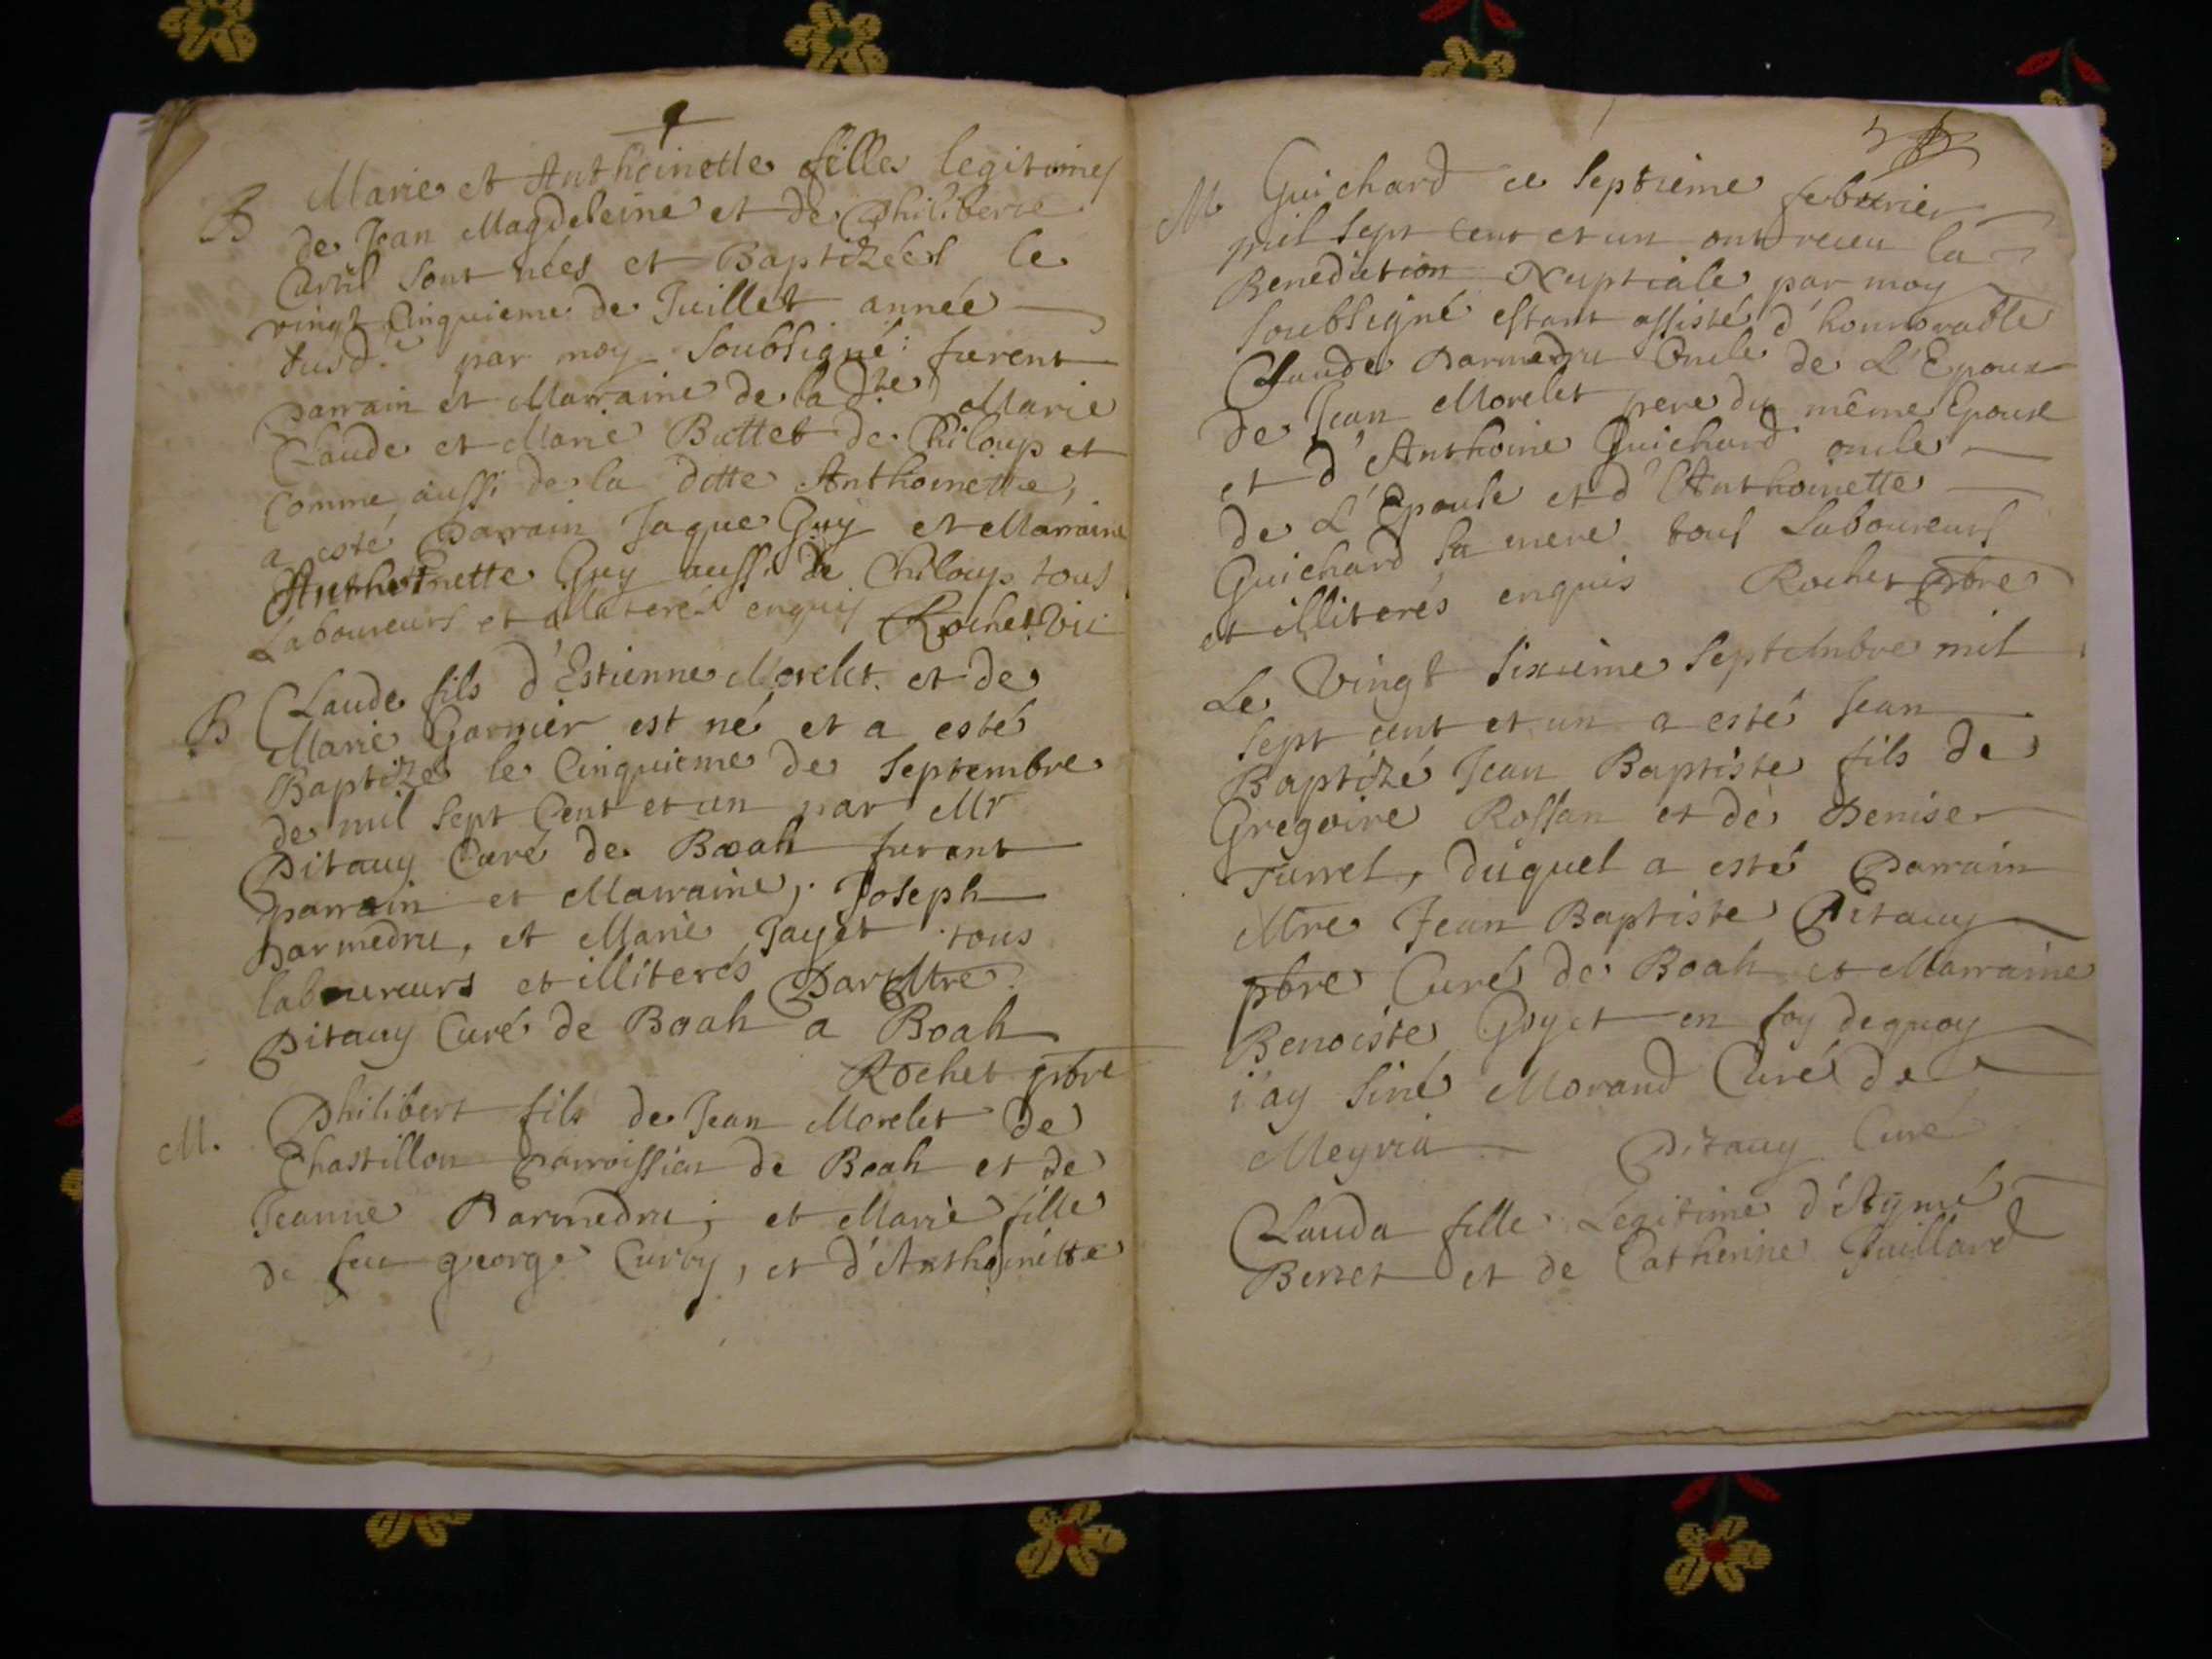 B Marie et Anthoinette filles legitimes
de Jean Magdeleine et de Philiberte
Curvil sont nées et Baptizées le
vingt Cinquieme de Juillet année
susd.e par moy Soubsigné: furent
parrain et Marraine de la d.te Marie
Claude et Marie Buttet de Chiloup et
Comme aussi de la ditte Anthoinette,
a esté Parrain Jaque Guy et Marraine
Anthoinette Guy aussi de Chiloup tous
Laboureurs et illiterés enquis Rochet Vic
B Claude fils d'Estienne Morelet et de
Marie Garnier est né et a esté
Baptizé le Cinquieme de Septembre
de mil Sept Cent et un par Mr
Pitauy Curé de Boah furent
parrain et Marraine, Joseph
Darmedru, et Marie Jayet tous
laboureurs et illiterés Par Mtre
Pitauy Curé de Boah a Boah
Rochet pbre
M. Philibert fils de Jean Morelet de
Chastillon Parroissien de Boah et de
Jeanne Darmedru; et Marie fille
de feu george Curby, et d'Anthoinette
M Guichard ce Septieme feburier
mil Sept Cent et un ont receu la
Benediction Nuptiale par moy
soubsigné estant assisté d'honnorable
Claude Darmedru Oncle de L'Epoux
de Jean Morelet pere du même Epoux
et d'Anthoine Guichard oncle
de L'Epouse et d'Anthoinette
Guichard sa mere tous Laboureurs
et illiterés enquis Rochet pbre
Le Vingt Sixieme Septembre mil
Sept cent et un a esté Jean
Baptizé Jean Baptiste fils de
Gregoire Rossan et de Denise
Turrel, duquel a esté Parrain
Mtre Jean Baptiste Pitauy
pbre Curé de Boah et Marraine
Benoiste Goyet en foy dequoy
i'ay Siné Morand Curé de
Meyria Pitauy Curé
Clauda fille Legitime d'Aymé
Berret et de Catherine Juillard